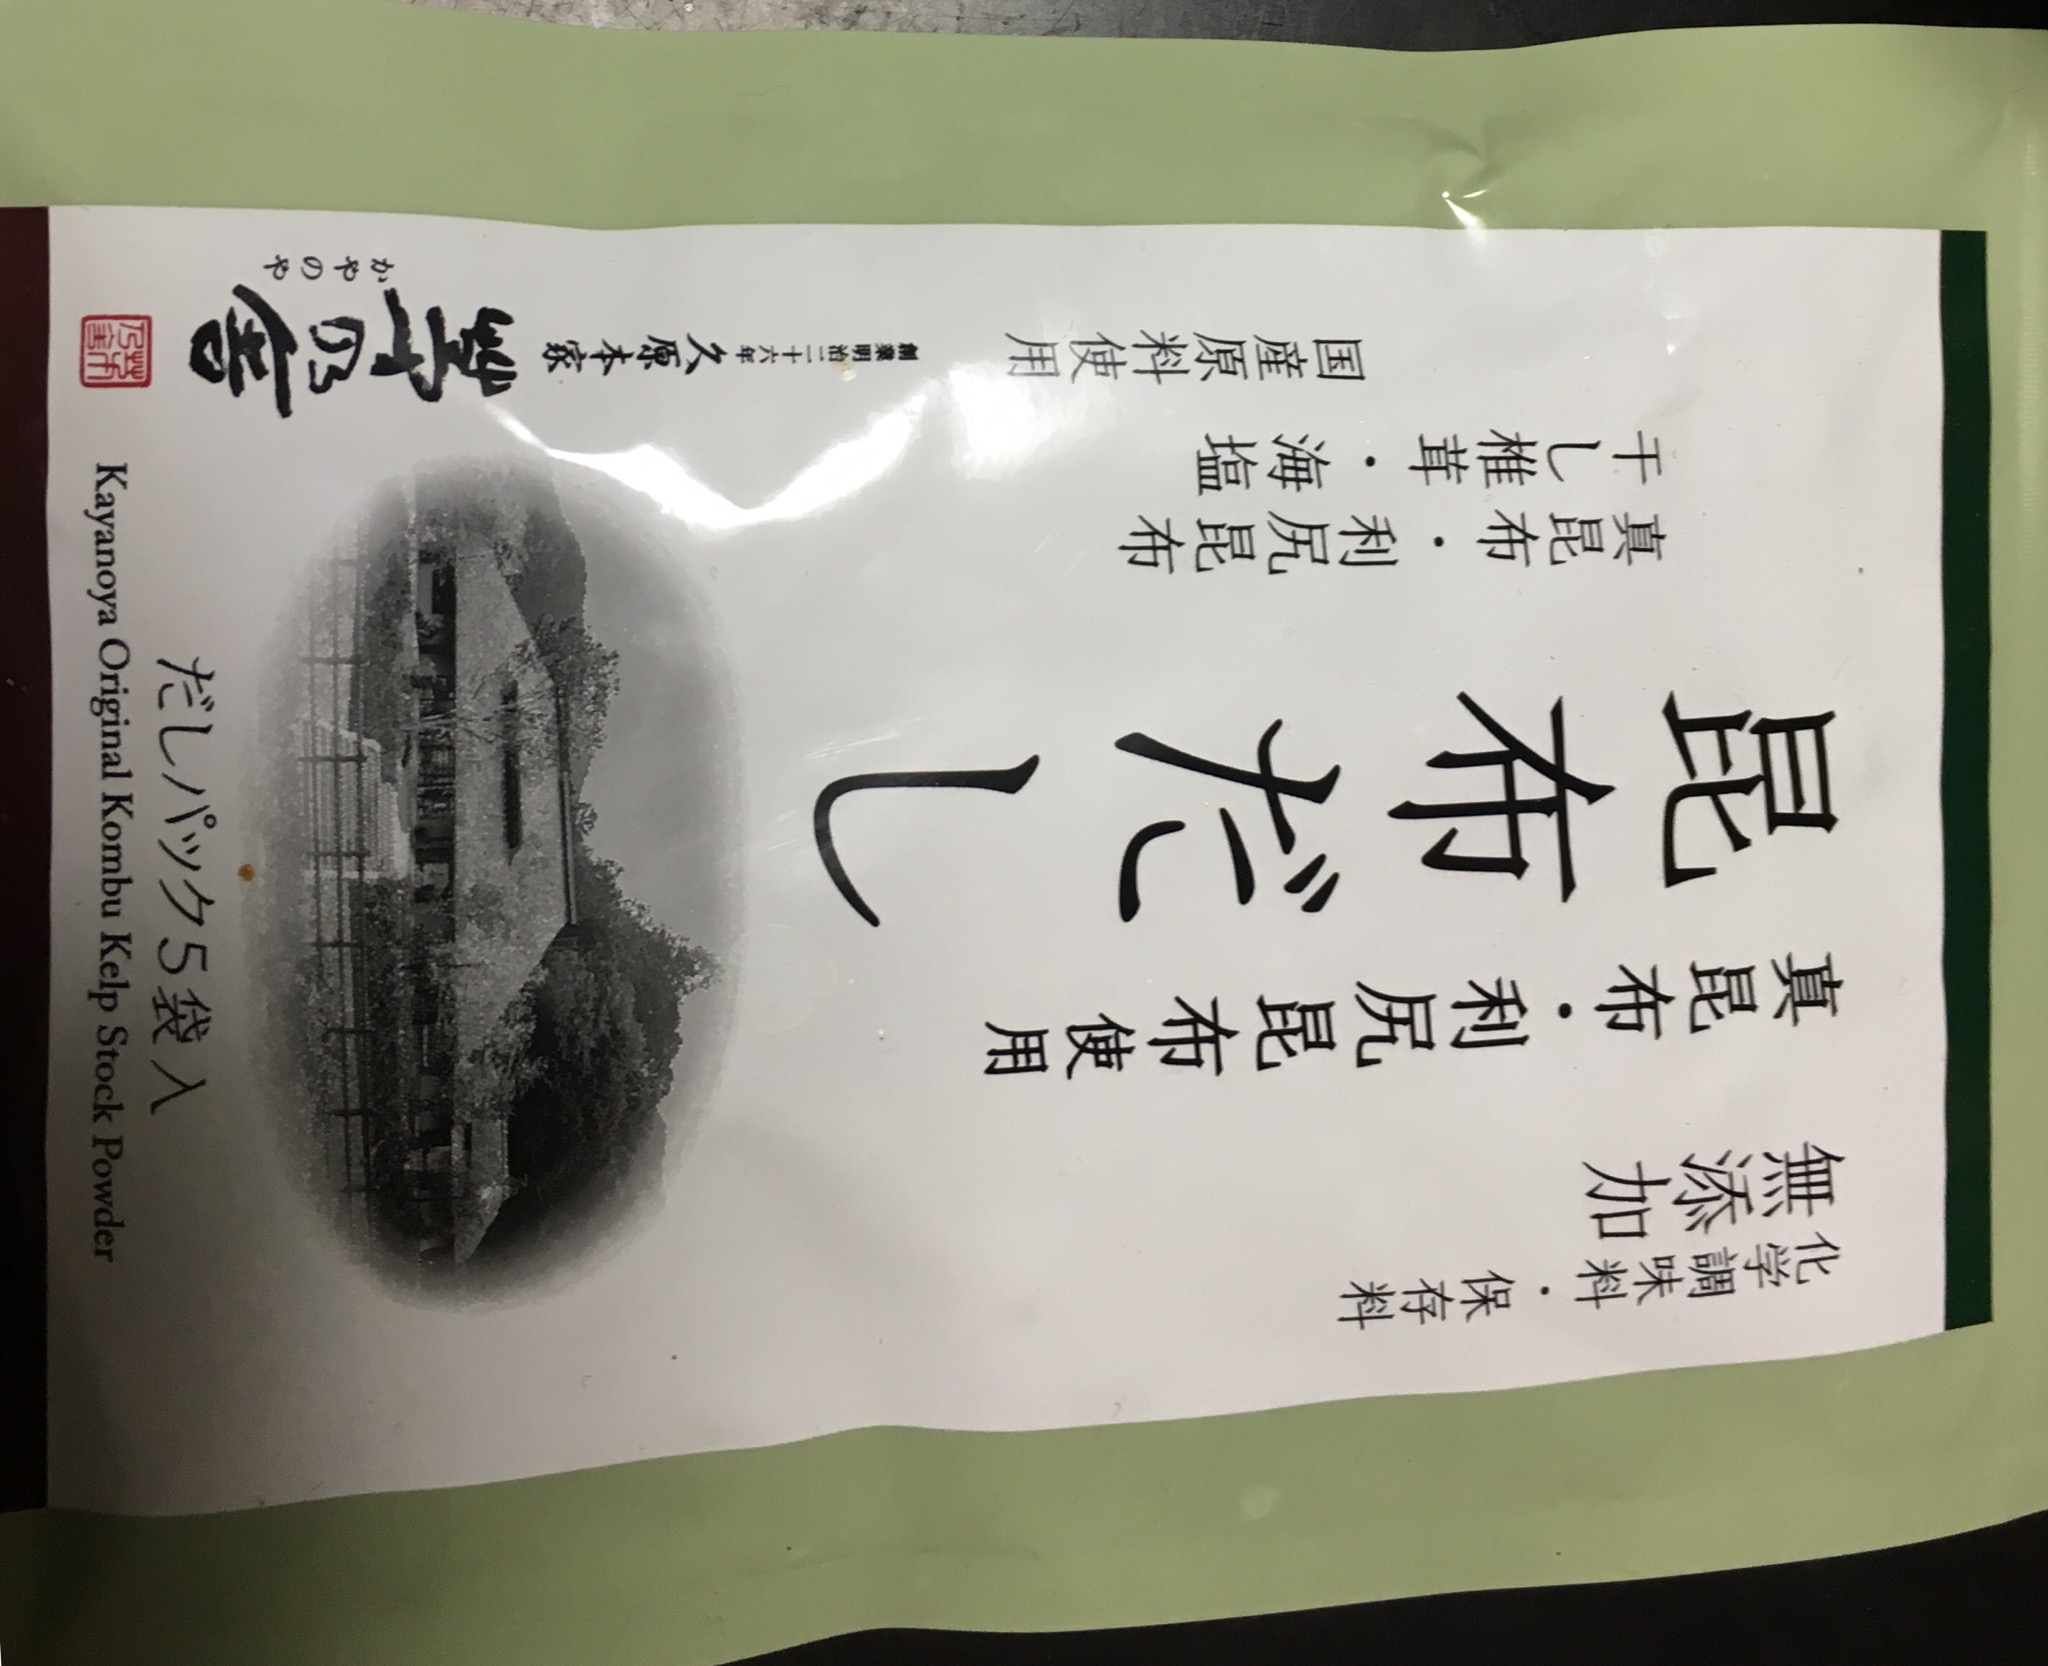 無添加
化学調味料・保存料
真昆布・利尻昆布使用
昆布だし
真昆布・利尻昆布
干し椎茸・海塩
国産原料使用
創業明治二十六年 久原本家
茅乃舎
かやのや
だしパック5袋入
Kayanoya Original Kombu Kelp Stock Powder